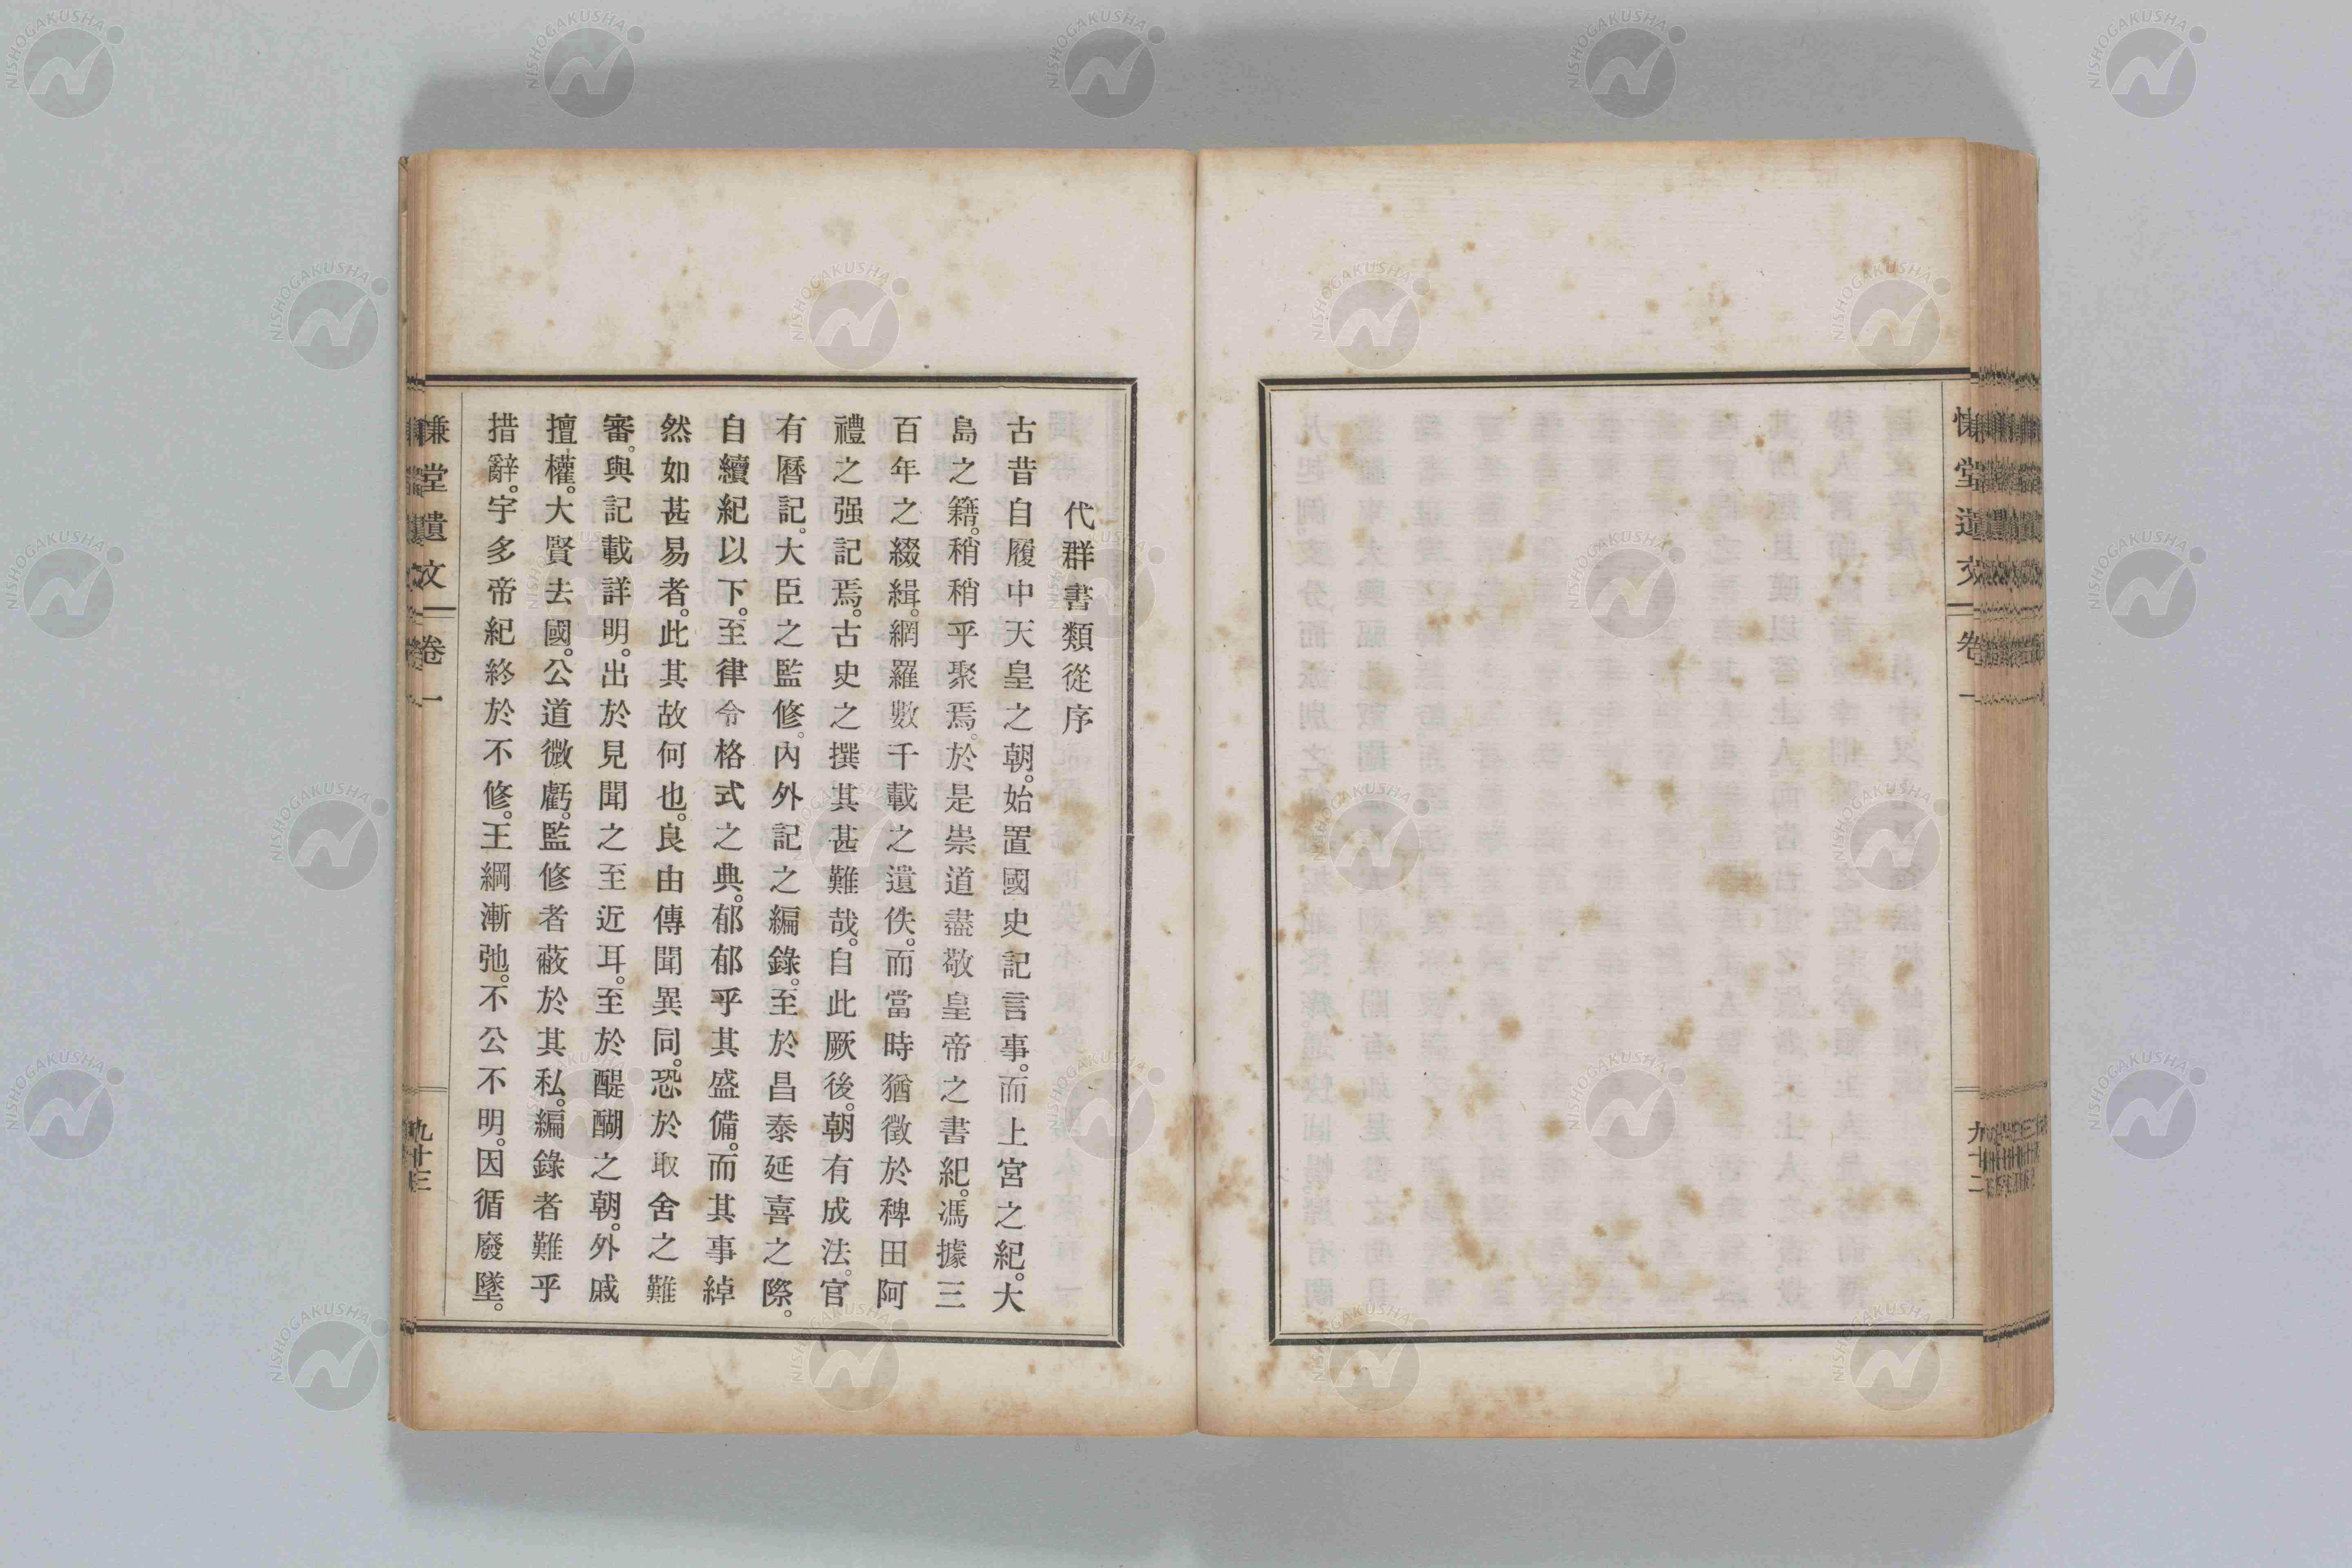 慊堂遺文
卷一
九十二
代群書類從序
古昔自履中天皇之朝。始置國史記言事。而上宮之紀。大
島之籍。稍稍乎聚焉。於是崇道盡敬皇帝之書紀。馮據三
百年之綴緝。網羅數千載之遺佚。而當時猶徵於稗田阿
禮之强記焉。古史之撰其甚難哉。自此厥後。朝有成法。官
有曆記。大臣之監修。內外記之編錄。至於昌泰延喜之際。
自續紀以下。至律令格式之典。郁郁乎其盛備。而其事綽
然如甚易者。此其故何也。良由傳聞異同。恐於取舍之難
審。與記載詳明。出於見聞之至近耳。至於醍醐之朝。外戚
擅權。大賢去國。公道微虧。監修者蔽於其私。編錄者難乎
措辭。宇多帝紀終於不修。王綱漸弛。不公不明。因循廢墜。
慊堂遺文
卷一
九十三
NISHOGAKUSHA